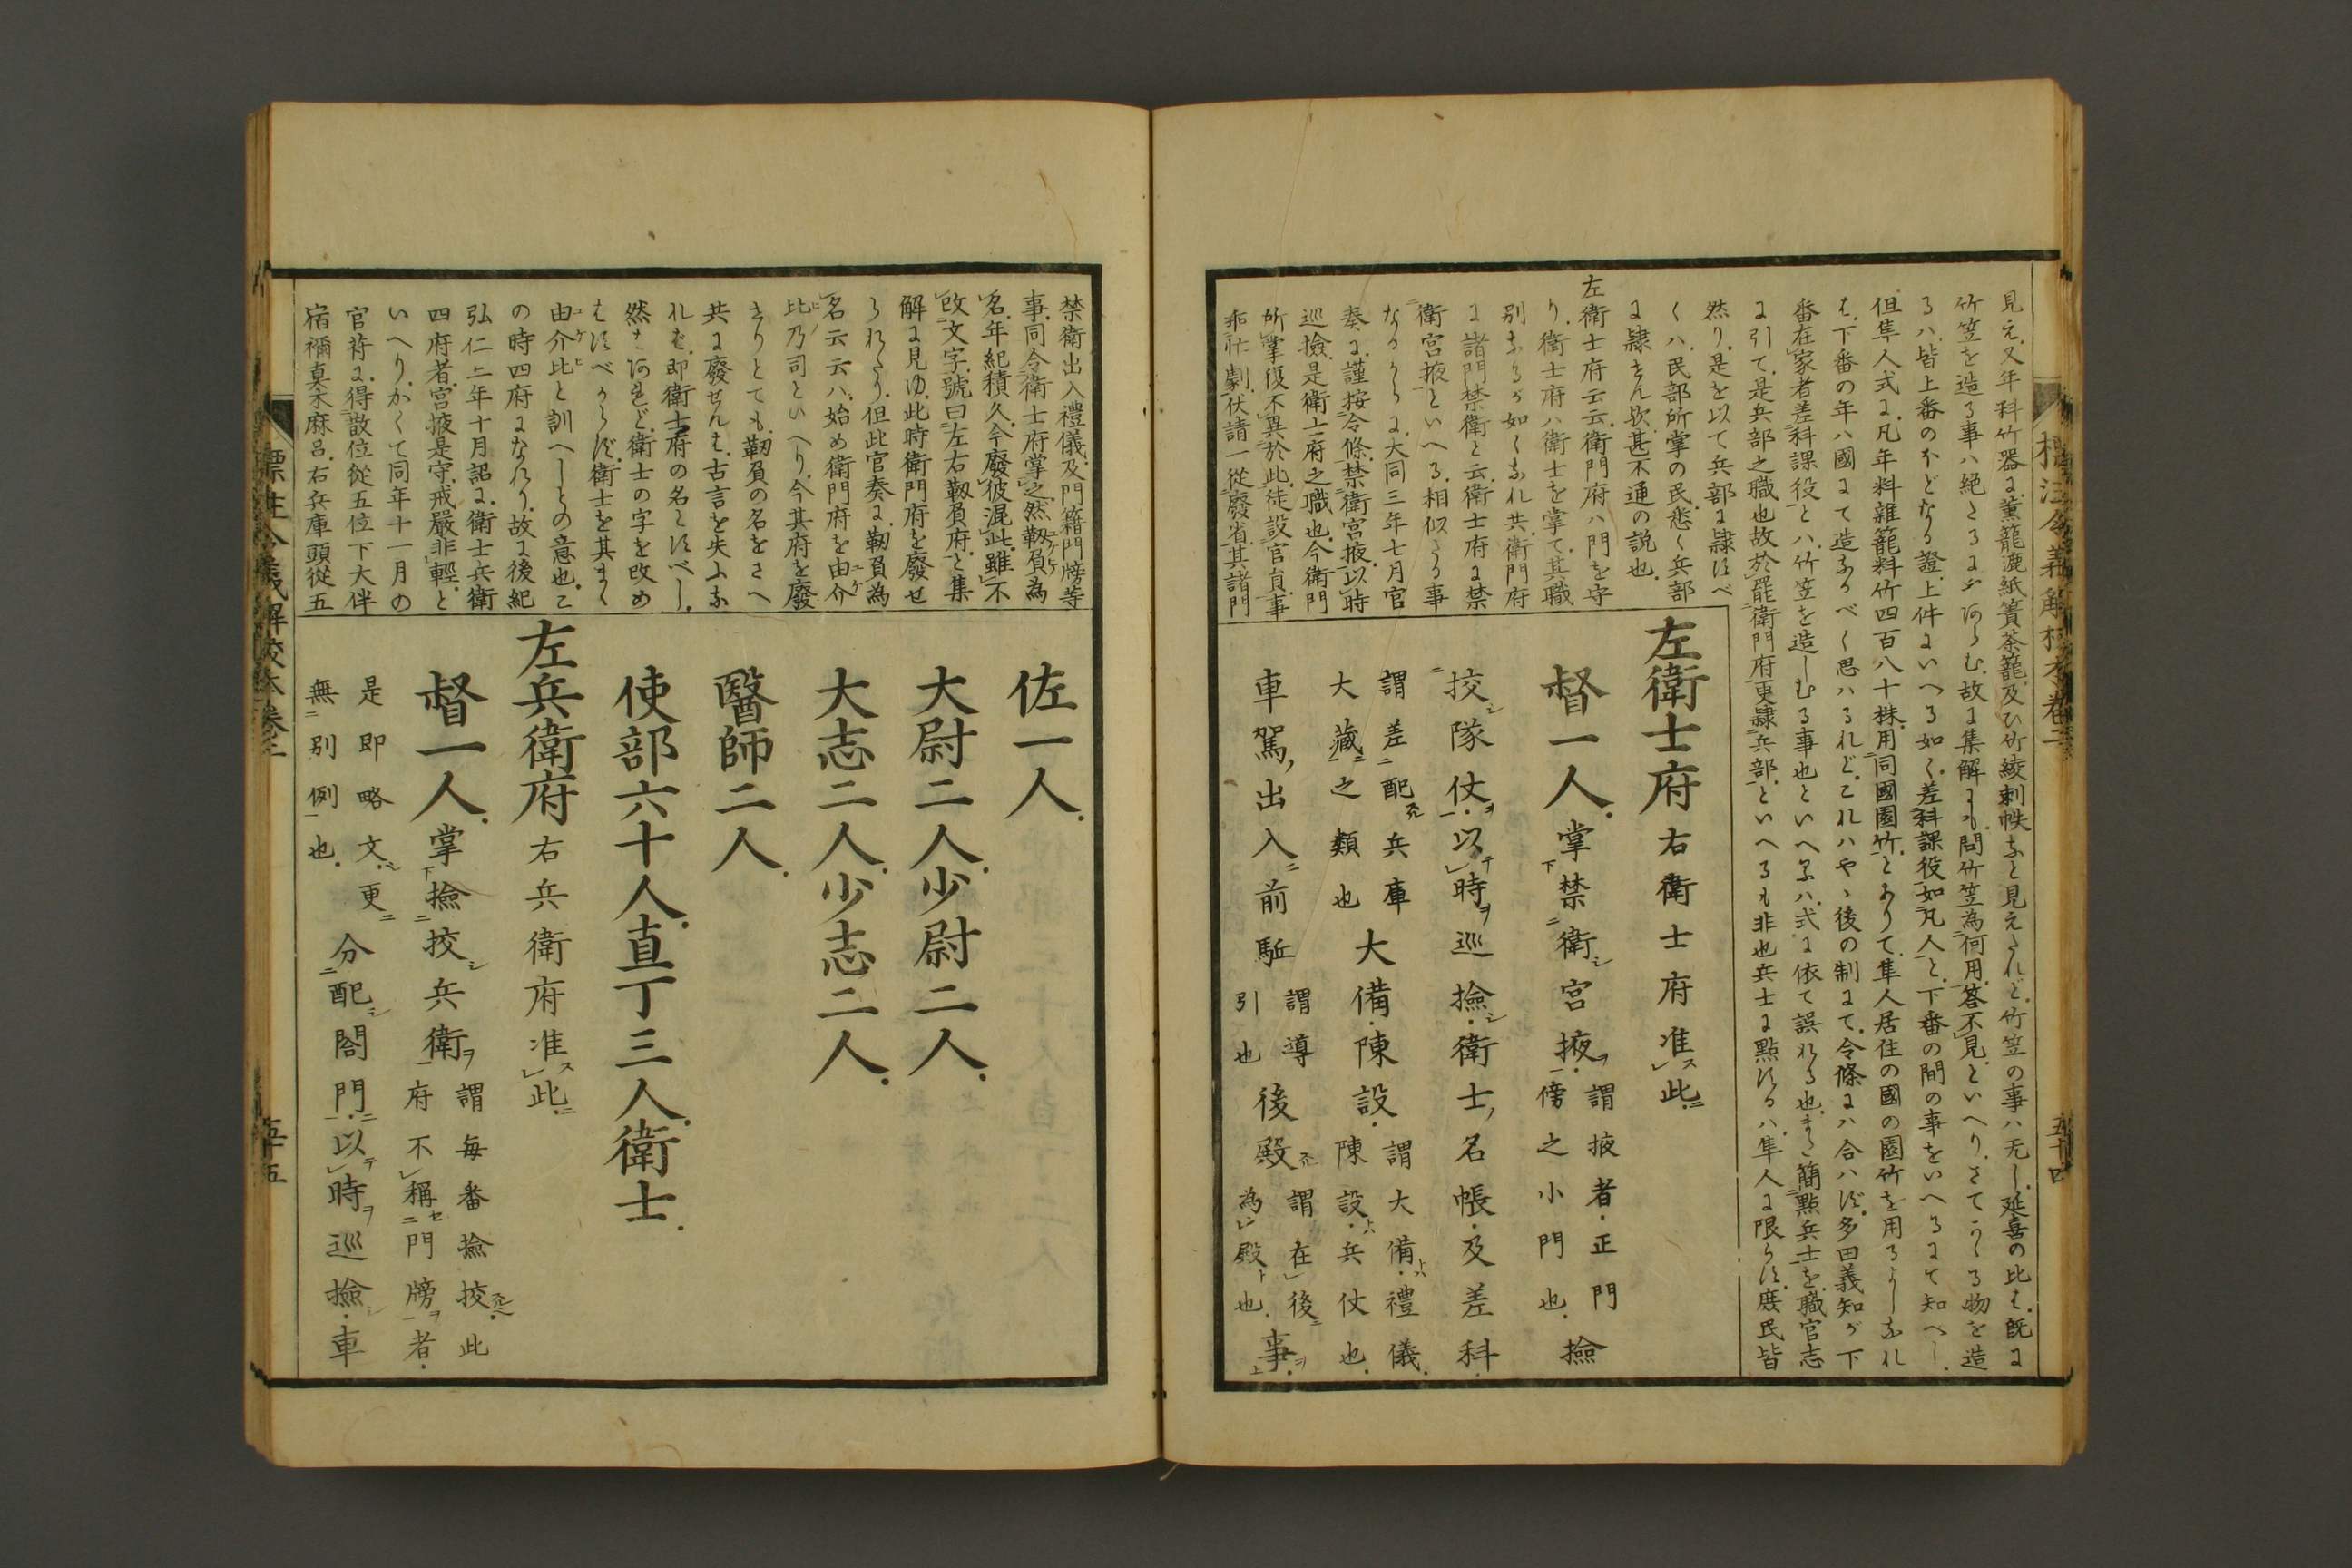 標注令義解校本卷二
五十四
見え.又年料竹器に薫籠漉紙簀茶籠.及ひ竹綾刺帙など見えたれど.竹笠の事ハ无し.延喜の比は.既に
竹笠を造る事ハ絕たるにやあらむ.故に集解にも.問竹笠為何用.答不見.といへり.さてかゝる物を造
るハ.皆上番のほどなる證.上件にいへる如く.差科課役.如凡人と.下番の間の事をいへるにて知べし.
但隼人式に.凡年料雜籠料竹四百八十株.用同國園竹とありて.隼人居住の國の園竹を用るよしなれ
は.下番の年ハ國にて造なるべく思ハるれど.これハやゝ後の制にて.令條にハ合ハず.多田義知が下
番在家者差科課役とハ.竹笠を造しむる事也といへるハ.式に依て誤れる也.また簡點兵士を.職官志
に引て.是兵部之職也故於罷衛門府更隷兵部.といへるも非也兵士に點するハ.隼人に限らず.廣民皆
然り.是を以て兵部に隷すべ
くハ.民部所掌の民.悉く兵部
に隷せん歟.甚不通の説也.
左衛士府云云.衛門府ハ門を守
り.衛士府ハ衛士を掌て.其職
別なるが如くなれ共.衛門府
に諸門禁衛と云.衛士府に禁
衛宮掖といへる.相似たる事
なるからに.大同三年七月官
奏に.謹按令條.禁衛宮掖.以時
巡撿.是衛士府之職也.今衛門
所掌復不異於此.徒設官員.事
乖壯劇.伏請一從廢省.其諸門
左衛士府 右衛士府准此.
督一人.掌禁衛宮掖.謂掖者.正門
傍之小門也.撿
挍隊仗.以時巡撿.衛士,名帳.及差科
謂差配兵庫
大藏之類也 大備.陳設.謂大備.禮儀.
陳設.兵仗也.
車駕,出入前駈 謂導
引也 後殿 謂在後
為殿也.事.
禁衛出入禮儀.及門籍門牓等
事.同令衛士府掌之.然靱負為
名.年紀積久.今廢彼混此.雖不
改文字.號曰左右靱負府.と集
解に見ゆ.此時衛門府を廢せ
られたり.但此官奏に.靱負為
名云云ハ.始め衛門府を由介
比乃司といへり.今其府を廢
さりとても.靱負の名をさへ
共に廢せんは.古言を失ふな
れば.即衛士府の名とすべし.
然ハあれど.衛士の字を改め
はすべからず.衛士を其まゝ
由介比と訓へしとの意也.こ
の時四府になれり.故に後紀
弘仁二年十月詔に.衛士兵衛
四府者.宮掖是守.戒嚴非輕.と
いへり.かくて同年十一月の
官符に.得散位從五位下大伴
宿禰真木麻呂.右兵庫頭從五
佐一人.
大尉二人.少尉二人.
大志二人.少志二人.
醫師二人.
使部六十人.直丁三人.衛士.
左兵衛府 右兵衛府准此.
督一人.掌撿挍兵衛 謂每番撿挍.此
府不稱門牓者.
是即略文.更
無別例也.分配閤門.以時巡撿.車
標注令義解校本卷二
五十五